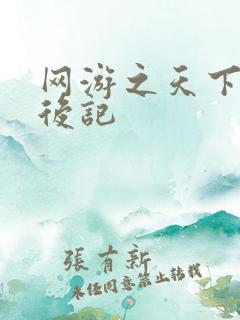 网游之天下
後記
張有新
未經同意禁止轉載